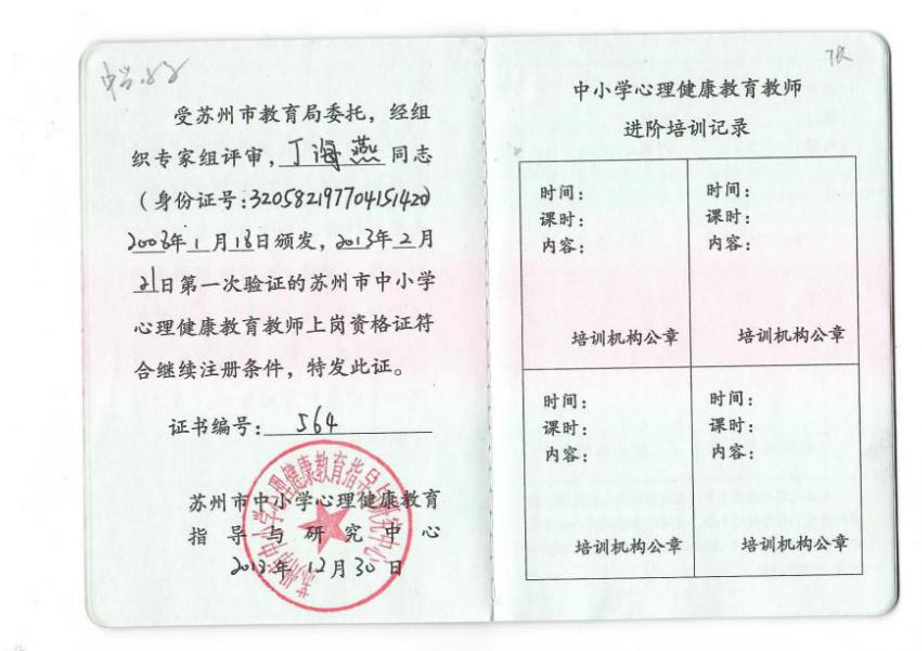 受苏州市教育局委托，经组
织专家组评审，丁海燕同志
（身份证号：320582197704151420）
2008年1月18日颁发，2013年2月
21日第一次验证的苏州市中小学
心理健康教育教师上岗资格证符
合继续注册条件，特发此证。
证书编号：564
苏州市中小学心理健康教育
指导与研究中心
2013年12月30日
苏州市中小学心理健康教育指导与研究中心
中小学心理健康教育教师
进阶培训记录
时间：
课时：
内容：
培训机构公章
时间：
课时：
内容：
培训机构公章
时间：
课时：
内容：
培训机构公章
时间：
课时：
内容：
培训机构公章